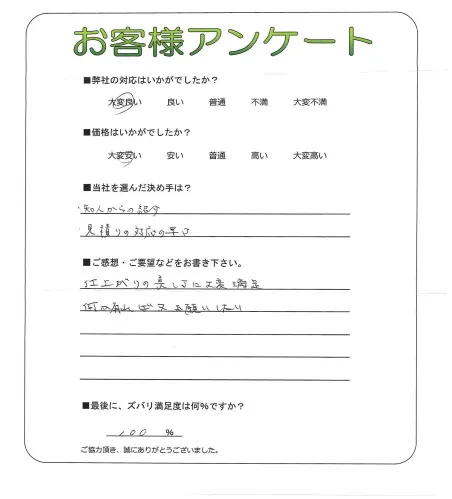 お客様アンケート
■弊社の対応はいかがでしたか？
大変良い 良い 普通 不満 大変不満
■価格はいかがでしたか？
大変安い 安い 普通 高い 大変高い
■当社を選んだ決め手は？
・知人からの紹介
・見積りの対応の早さ
■ご感想・ご要望などをお書き下さい。
仕上がりの美しさに大変満足
何か有れば又お願いしたい
■最後に、ズバリ満足度は何%ですか？
100 %
ご協力頂き、誠にありがとうございました。